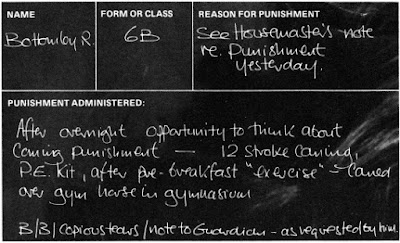 NAME
FORM OR CLASS
REASON FOR PUNISHMENT
Bottomley R.
6B
See Housemaster's note
re. Punishment
Yesterday.
PUNISHMENT ADMINISTERED:
After overnight opportunity to think about
coming punishment — 12 stroke caning,
P.E. Kit, after pre-breakfast "exercise" - caned
over gym horse in gymnasium
B/B/Copious tears/note to Guardian - as requested by him.